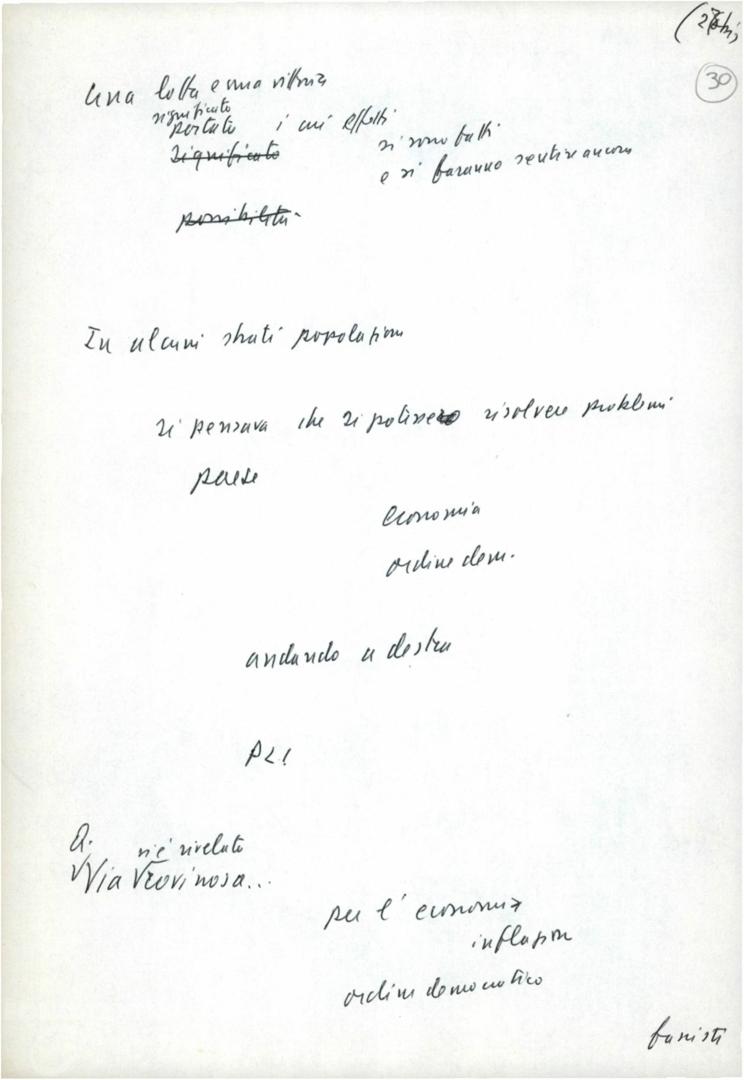 (27bis)
30
Una lotta e una vittoria
significato
portata i cui effetti
significato si sono fatti
e si faranno sentire ancora
possibilità
In alcuni strati popolazione
si pensava che si potessero risolvere problemi
paese
economia
ordine dem.
andando a destra
PLI
Q.
si è rivelata
Via rovinosa...
per l'economia
inflazione
ordine democratico
fascisti